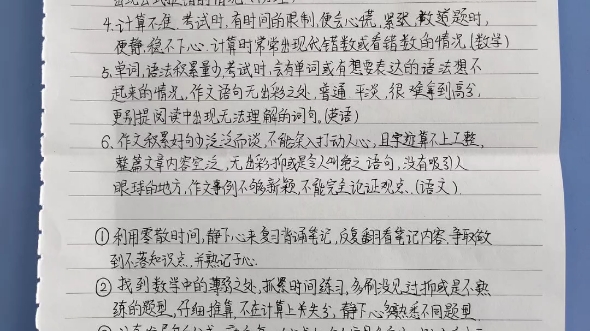 4.计算不准.考试时,有时间的限制,便会心慌,紧张,做道题时,
便静,稳不下心.计算时常常出现代错数或看错数的情况.(数学)
5.单词,语法积累量少,考试时,会有单词或有想要表达的语法想不
起来的情况,作文语句无出彩之处,普通 平淡,很难拿到高分,
更别提阅读中出现无法理解的词句.(英语)
6.作文积累好句少,泛泛而谈,不能深入打动人心,且字迹算不上工整.
整篇文章内容空泛,无出彩抑或是令人叫绝之语句,没有吸引人
眼球的地方,作文事例不够新颖,不能完全论证观点.(语文)
①利用零散时间,静下心来复习背诵笔记,反复翻看笔记内容.争取做
到不落知识点,并熟记于心.
②找到数学中的薄弱之处,抓紧时间练习,多刷没见过抑或是不熟
练的题型.仔细推算,不在计算上失分,静下心多熟悉不同题里